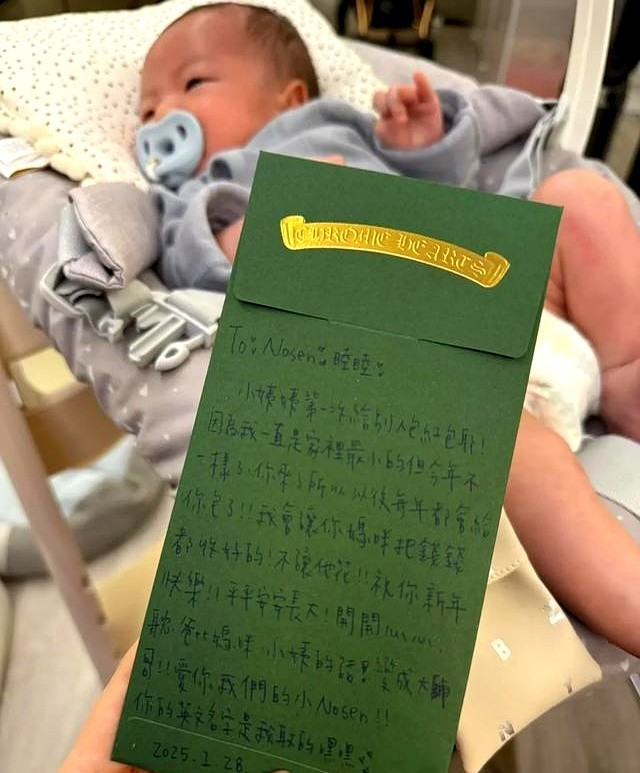 CHROME HEARTS
To: Nosen 睦睦:
小姨姨第一次給別人包紅包耶!
因為我一直是家裡最小的但今年不
一樣了.你來了所以以後每年都會給
你包了!!我會讓你媽咪把錢錢
都收好的!不讓他花!!祝你新年
快樂!!平平安安長大!開開心心.
聽爸爸媽咪.小姨的話!變成大帥
哥!!愛你我們的小Nosen!!
你的英文名字是我取的嘿嘿
2025.1.28.
B
N
Y